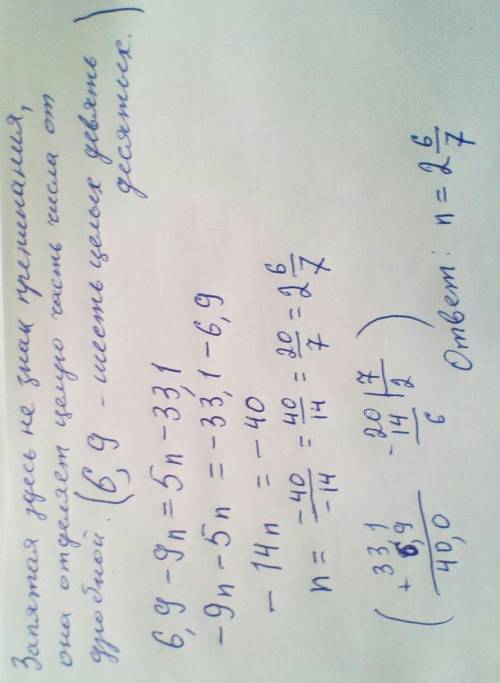 Запятая здесь не знак препинания,
она отделяет целую часть числа от
дробной. (6,9 - шесть целых девять
десятых.)
6,9 - 9n = 5n - 33,1
-9n - 5n = -33,1 - 6,9
-14n = -40
n = -40/-14 = 40/14 = 20/7 = 2 6/7
(+ 33,1 - 20 | 7
6,9 14 | 2
40,0 6 )
Ответ: n = 2 6/7